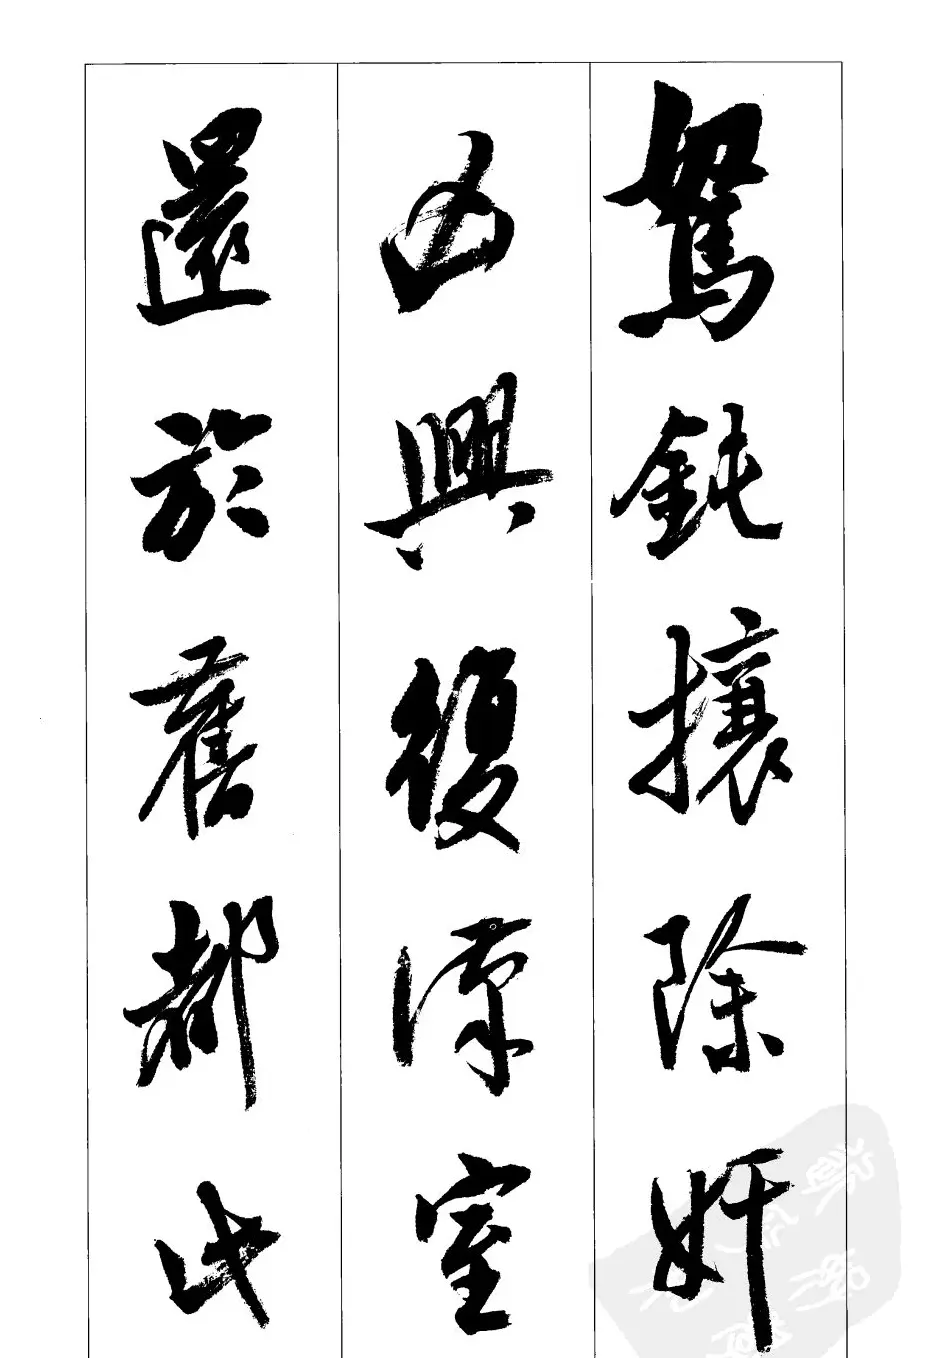 駑鈍攘除奸
凶興復漢室
還於舊都此